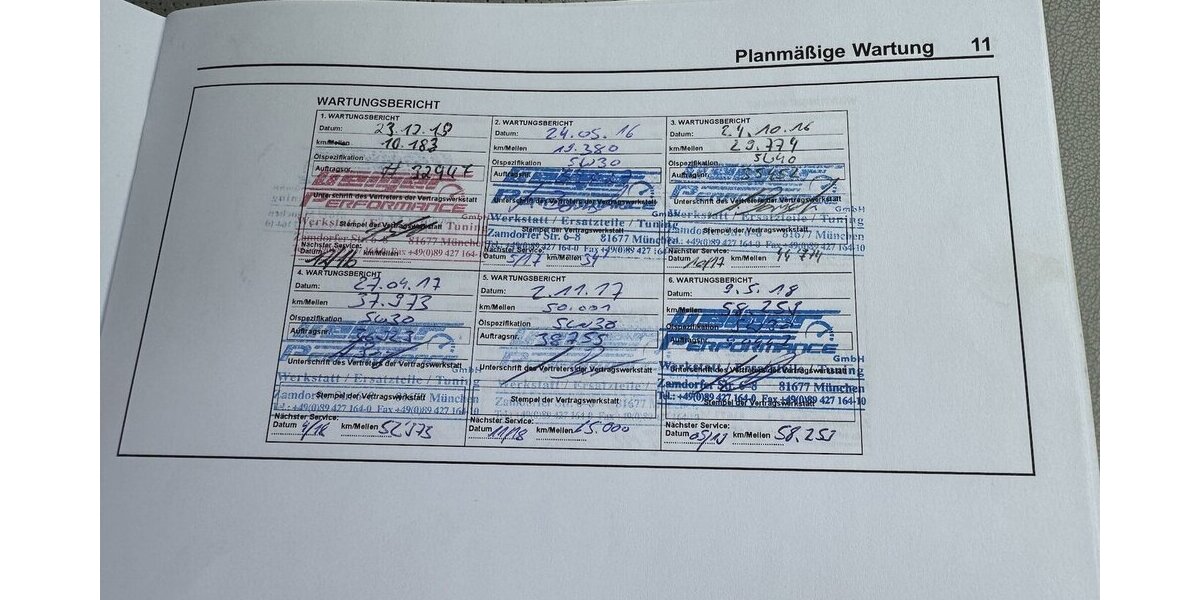 Planmäßige Wartung 11
WARTUNGSBERICHT
1. WARTUNGSBERICHT
Datum:
km/Meilen 10.183
Ölspezifikation
Auftragsnr.
PERFORMANCE
Unterschrift des Vertreters der Vertragswerkstatt
GmbH
Werkstatt / Ersatzteile / Tuning
Stempel der Vertragswerkstatt
81677 München
Nächster Service:
Datum km/Meilen
2. WARTUNGSBERICHT
Datum: 24.05.16
km/Meilen 19.380
Ölspezifikation 5W30
Auftragsnr.
PERFORMANCE
Unterschrift des Vertreters der Vertragswerkstatt
GmbH
Werkstatt / Ersatzteile / Tuning
Stempel der Vertragswerkstatt
Zamdorfer Str. 6-8 81677 München
Tel.: +49(0)89 427 164-0 Fax +49(0)89 427 164-10
Nächster Service:
Datum 5/17 km/Meilen
3. WARTUNGSBERICHT
Datum: 24.10.16
km/Meilen 29.774
Ölspezifikation 5W40
Auftragsnr. 35452
PERFORMANCE
Unterschrift des Vertreters der Vertragswerkstatt
GmbH
Werkstatt / Ersatzteile / Tuning
Stempel der Vertragswerkstatt
81677 München
+49(0)89 427 164-0 Fax +49(0)89 427 164-10
Nächster Service:
Datum 10/17 km/Meilen 44774
4. WARTUNGSBERICHT
Datum: 27.04.17
km/Meilen 37.973
Ölspezifikation 5W30
Auftragsnr.
PERFORMANCE
Unterschrift des Vertreters der Vertragswerkstatt
GmbH
Werkstatt / Ersatzteile / Tuning
Zamdorfer 81677 München
Stempel der Vertragswerkstatt
Tel.: +49(0)89 427 164-0 Fax +49(0)89 427 164-10
Nächster Service:
Datum 4/18 km/Meilen 52973
5. WARTUNGSBERICHT
Datum: 2.11.17
km/Meilen 50.001
Ölspezifikation 5W30
Auftragsnr. 38755
Unterschrift des Vertreters der Vertragswerkstatt
Werkstatt / Ersatzteile /
Stempel der Vertragswerkstatt
Nächster Service:
Datum 11/18 km/Meilen 65.000
6. WARTUNGSBERICHT
Datum: 9.5.18
km/Meilen 58.253
Ölspezifikation
Auftragsnr.
PERFORMANCE
GmbH
Unterschrift des Vertreters der Vertragswerkstatt
Werkstatt / Ersatzteile / Tuning
Zamdorfer Str. 6-8 81677 München
Tel.: +49(0)89 427 164-0 Fax +49(0)89 427 164-10
Stempel der Vertragswerkstatt
Nächster Service:
Datum 05/19 km/Meilen 58.253